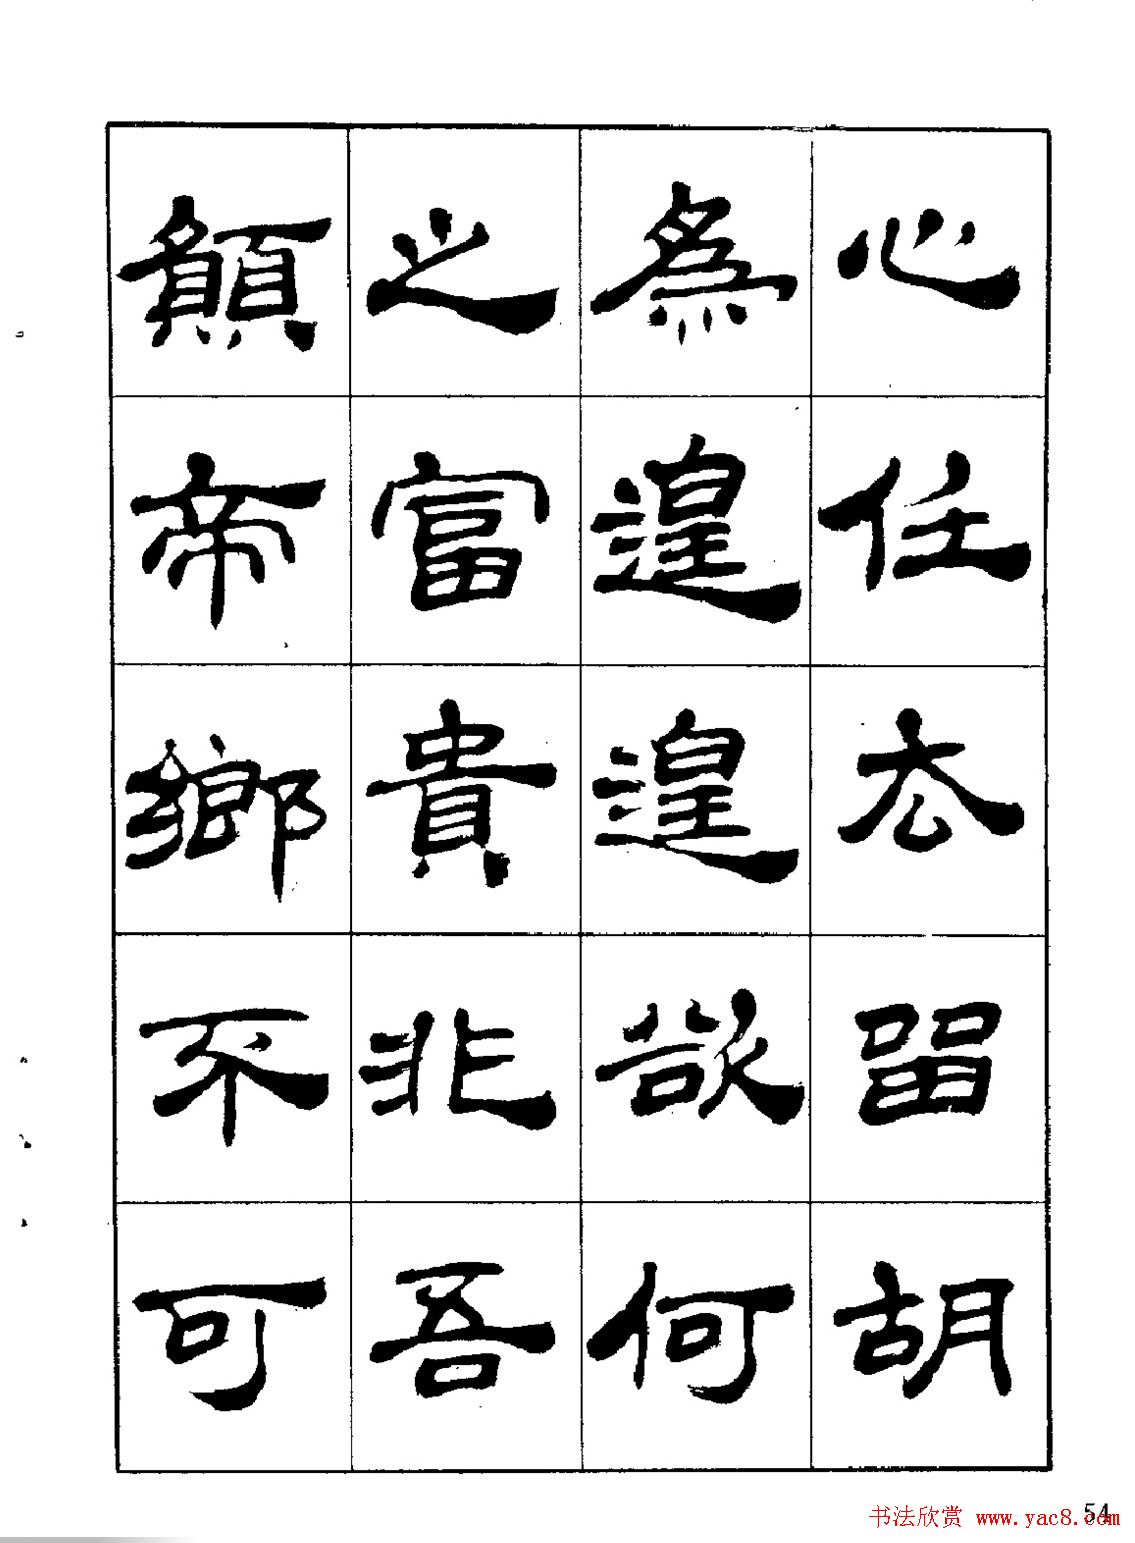 心任去留胡
為遑遑欲何
之富貴非吾
願帝鄉不可
54
书法欣赏 www.yac8.com